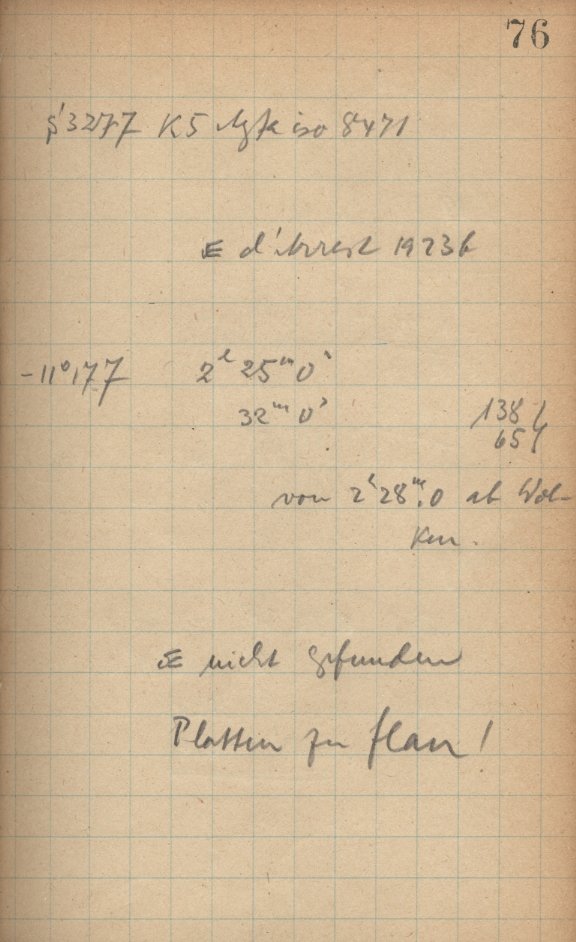 76
3277 K5 Agfa iso 8471
d'Arrest 1923b
-11°177 2ʰ 25ᵐ 0ˢ
32ᵐ 0ˢ 138
65
von 2ʰ 28ᵐ.0 ab Wol-
ken.
nicht gefunden
Platten zu flau!